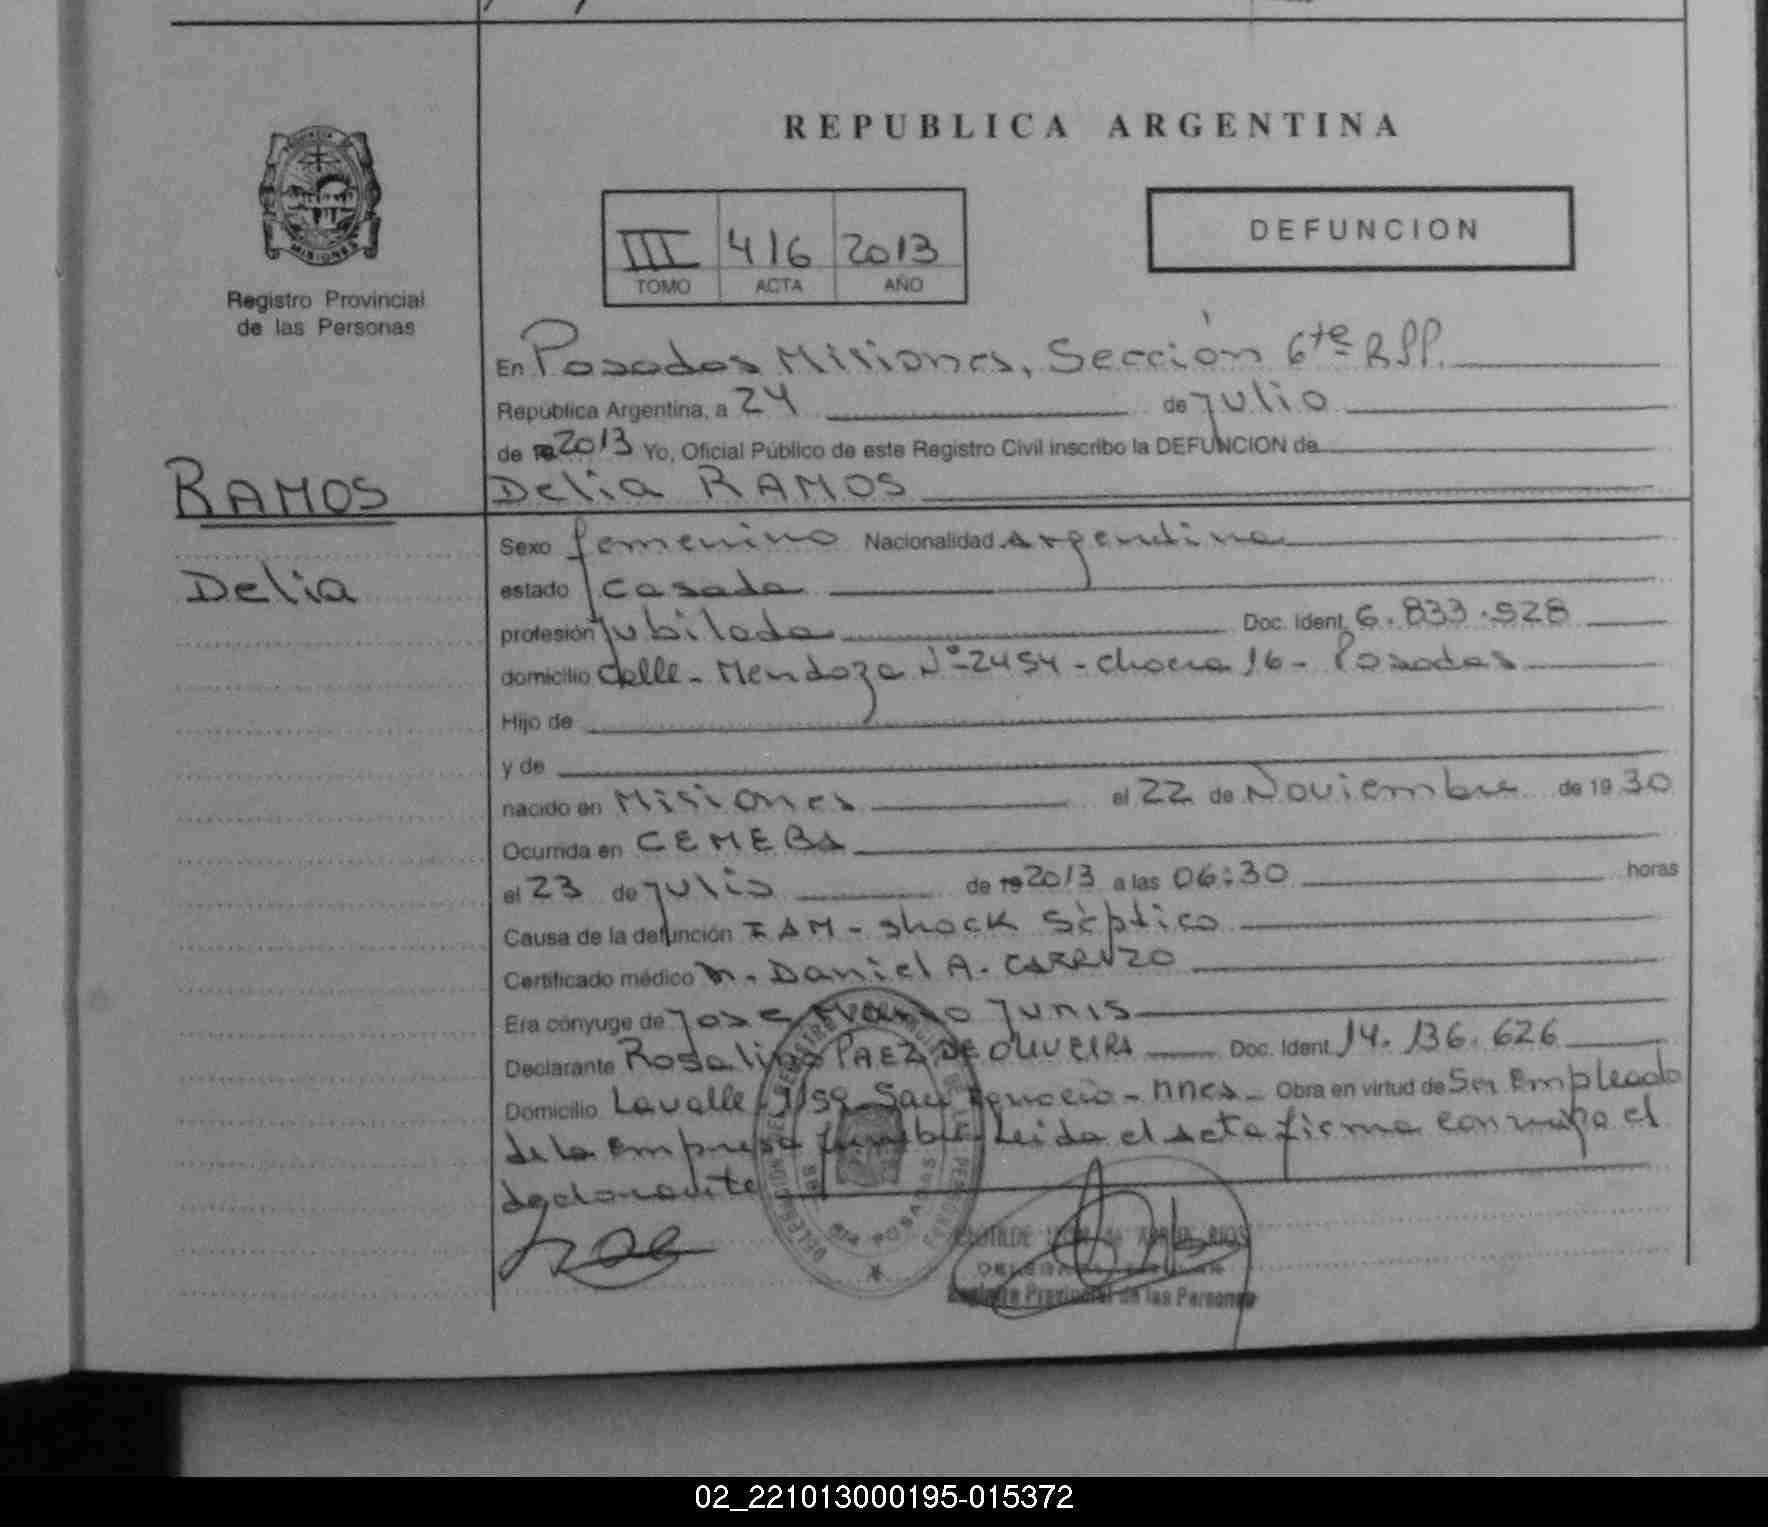 REPUBLICA ARGENTINA
PROVINCIA
MISIONES
Registro Provincial
de las Personas
III 416 2013
TOMO ACTA AÑO
DEFUNCION
En Posadas Misiones, Sección 6te RPP.
República Argentina, a 24 de julio
de 19 2013 Yo, Oficial Público de este Registro Civil inscribo la DEFUNCION de
RAMOS
Delia
Delia RAMOS
Sexo femenino Nacionalidad Argentina
estado casada
profesión jubilada Doc. Ident. 6.833.928
domicilio Calle - Mendoza Nº 2454 - chacra 16 - Posadas
Hijo de
y de
nacido en Misiones el 22 de Noviembre de 1930
Ocurrida en CEMEBA
el 23 de julio de 19 2013 a las 06:30 horas
Causa de la defunción IAM - shock séptico
Certificado médico Daniel A. CARRUZO
Era cónyuge de Jose Junis
Declarante Rosalino PAEZ DE OLIVEIRA Doc. Ident. 14.136.626
Domicilio Lavalle San Ignacio - Mnes - Obra en virtud de Ser Empleado
de la empresa funebre Leida el acta firma conmigo el
declarante
POSADAS
RIOS
Registro Provincial de las Personas
02_221013000195-015372